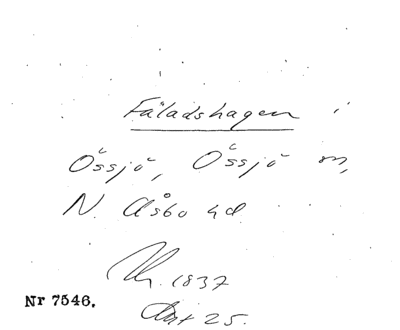 Fäladshagen i
Össjö, Össjö sn,
N. Åsbo hd
Nr. 1837
Nr 7546.
Akt 25.